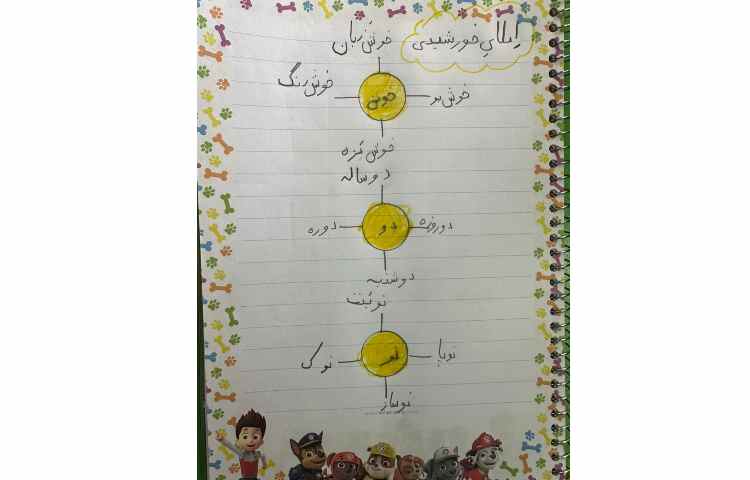 املایِ خورشیدی
خوش زبان
خوش رنگ
خوش بو
خوش
خوش مزه
دو ساله
دوروزه
دو
دوره
دوشنبه
نوبت
نوپا
نو
نوک
نوساز